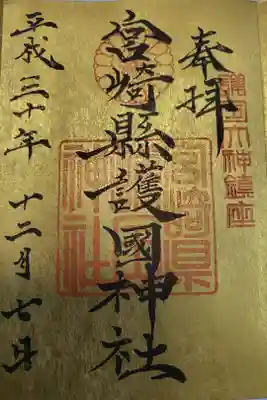 奉拝
護国大神鎮座
宮崎縣護國神社
宮崎県護国神社
平成三十年 十二月七日